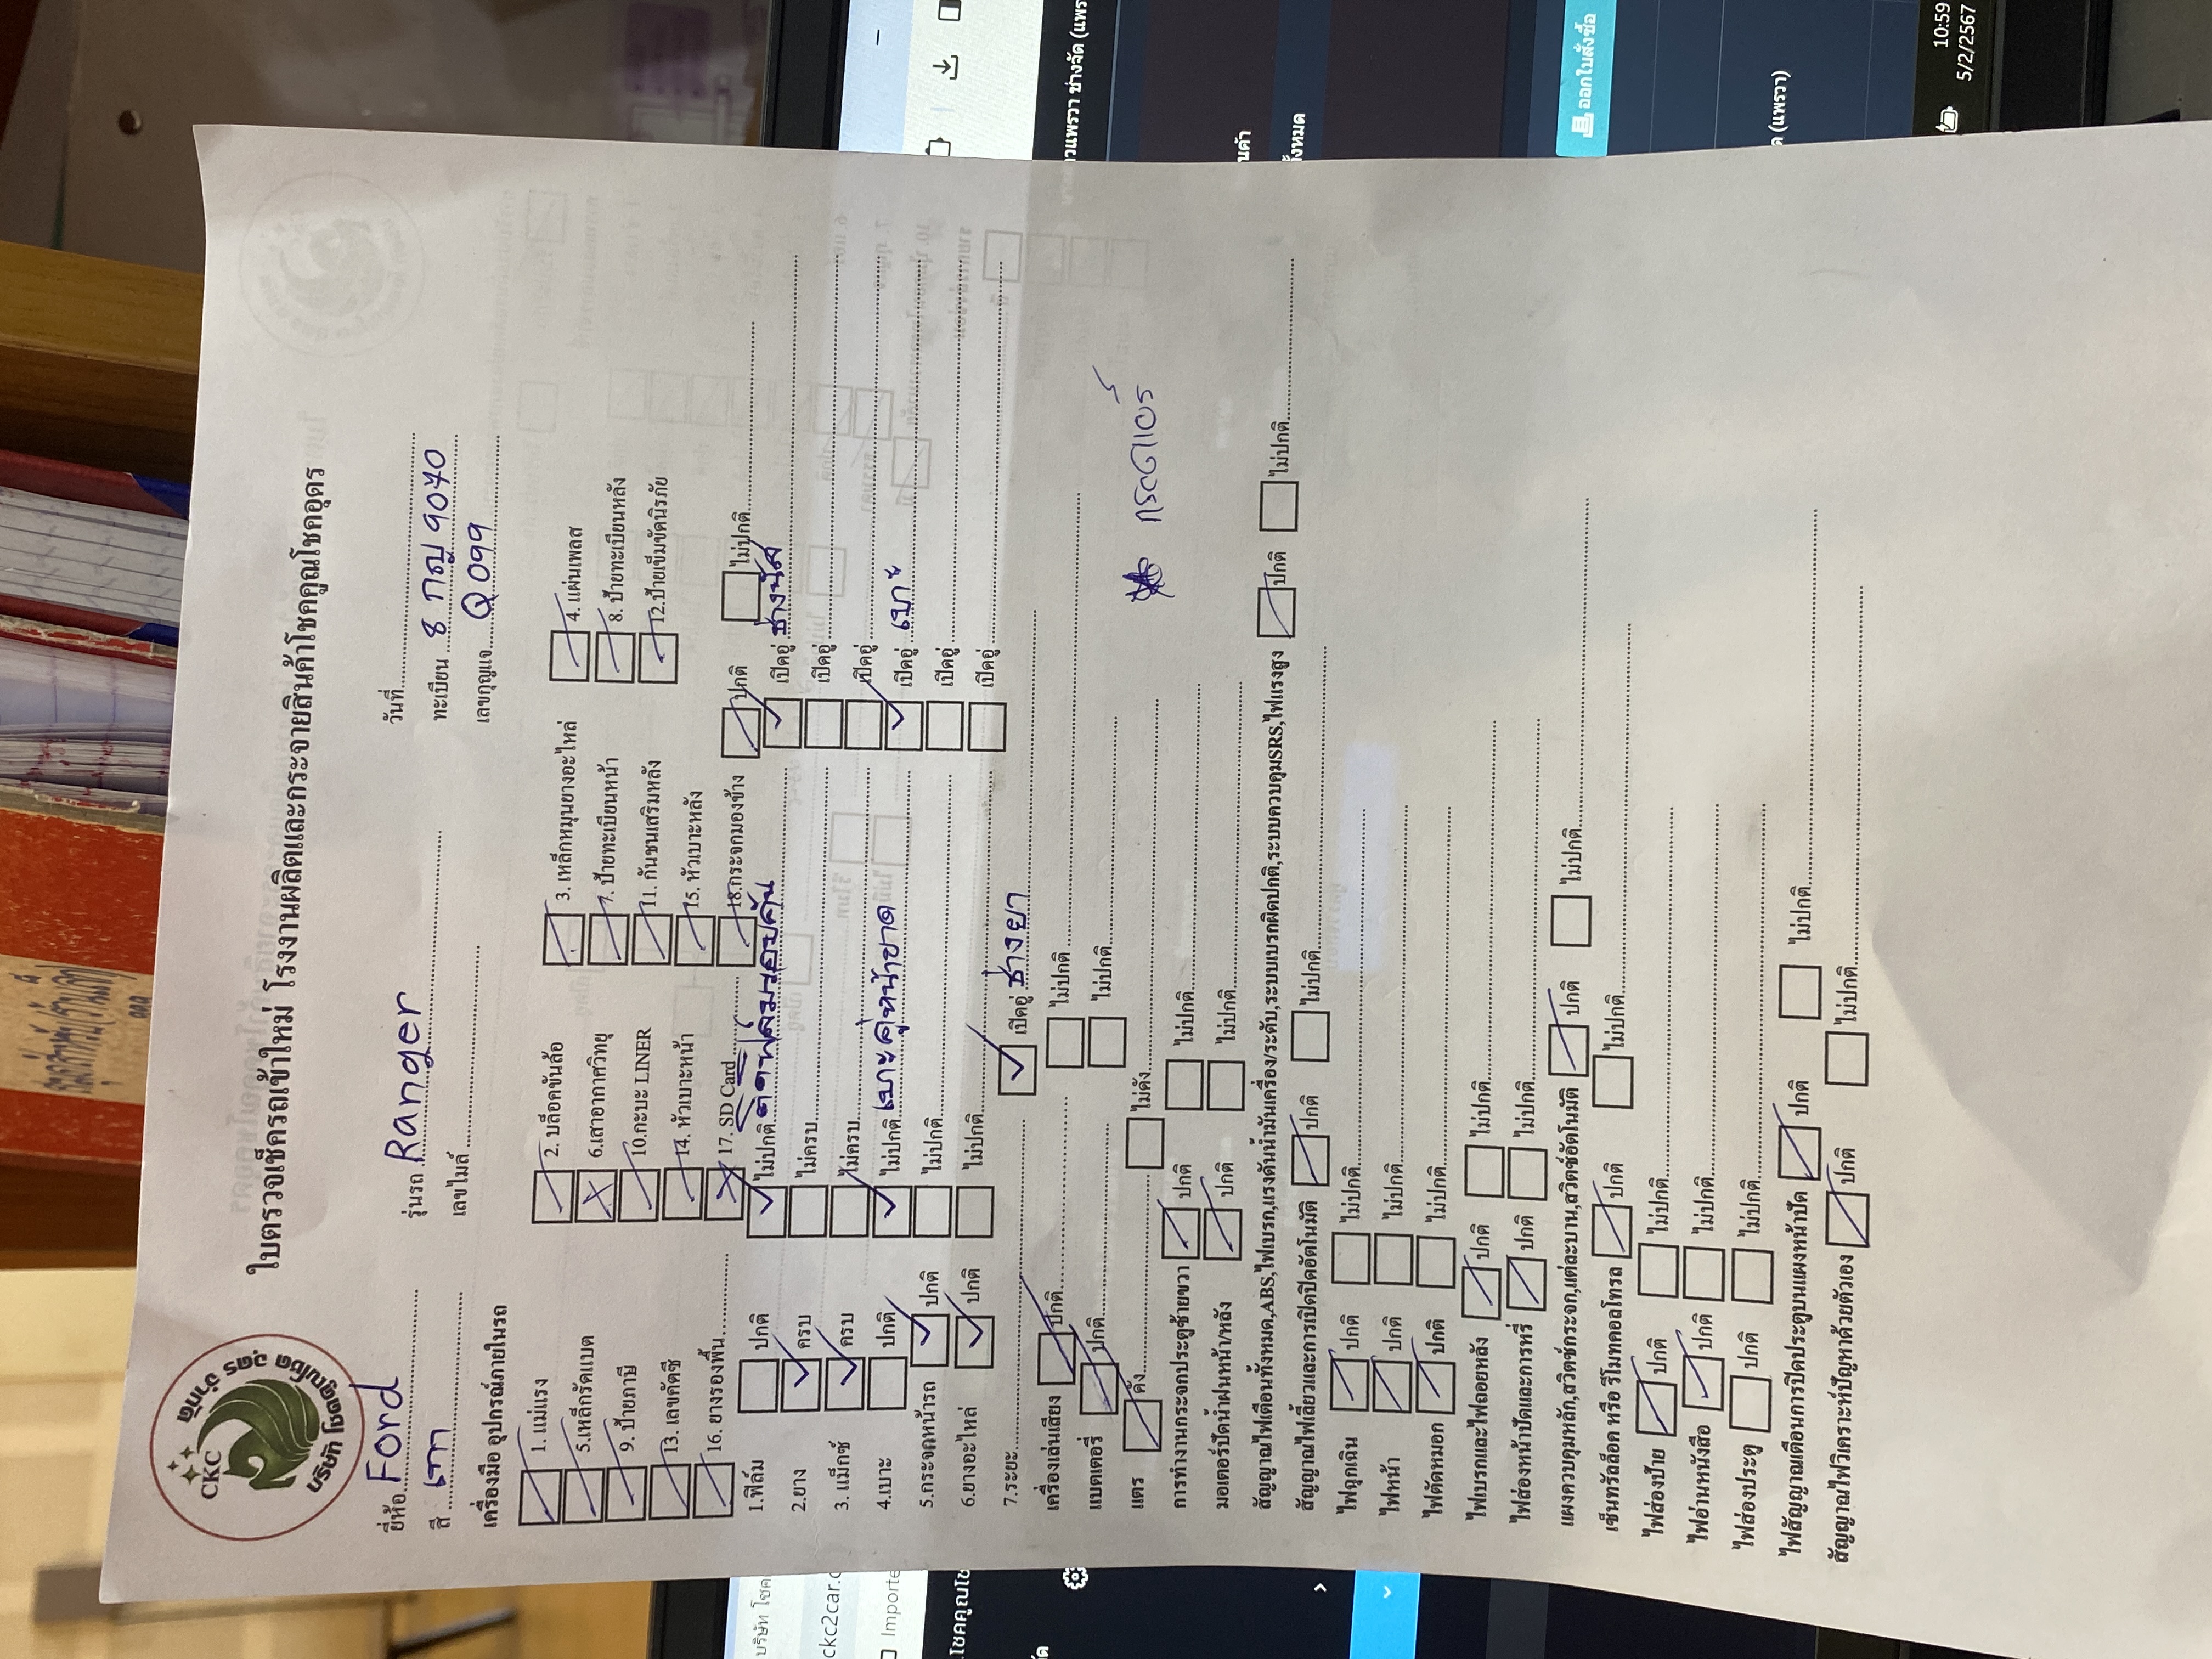 CKC
บริษัท โชคคูณโชค อุดร จำกัด
ใบตรวจเช็ครถเข้าใหม่ โรงงานผลิตและกระจายสินค้าโชคคูณโชคอุดร
ยี่ห้อ Ford รุ่นรถ Ranger วันที่
สี เทา เลขไมล์ ทะเบียน 8 กญ 9070
เลขกุญแจ Q 099
เครื่องมือ อุปกรณ์ภายในรถ
1. แม่แรง 2. บล็อคขันล้อ 3. เหล็กหมุนยางอะไหล่ 4. แผ่นเพลส
5.เหล็กรัดแบต 6.เสาอากาศวิทยุ 7. ป้ายทะเบียนหน้า 8. ป้ายทะเบียนหลัง
9. ป้ายภาษี 10.กะบะ LINER 11. กันชนเสริมหลัง 12.ป้ายเข็มขัดนิรภัย
13. เลขคัตซี 14. หัวเบาะหน้า 15. หัวเบาะหลัง
16. ยางรองพื้น 17. SD Card 18.กระจกมองข้าง ปกติ ไม่ปกติ
1.ฟิล์ม ปกติ ไม่ปกติ ติดฟิล์มรอบคัน เปิดอู่ ช่างนัส
2.ยาง ครบ ไม่ครบ เปิดอู่
3. แม็กซ์ ครบ ไม่ครบ เปิดอู่
4.เบาะ ปกติ ไม่ปกติ เบาะคู่หน้าขาด เปิดอู่ เบาะ
5.กระจกหน้ารถ ปกติ ไม่ปกติ เปิดอู่
6.ยางอะไหล่ ปกติ ไม่ปกติ เปิดอู่
7.ระยะ เปิดอู่ ช่างยา
เครื่องเล่นเสียง ปกติ ไม่ปกติ
แบตเตอรี่ ปกติ ไม่ปกติ
แตร ดัง ไม่ดัง
การทำงานกระจกประตูซ้ายขวา ปกติ ไม่ปกติ
มอเตอร์ปัดน้ำฝนหน้า/หลัง ปกติ ไม่ปกติ
สัญญาณไฟเตือนทั้งหมด,ABS,ไฟเบรก,แรงดันน้ำมันเครื่อง/ระดับ,ระบบเบรกผิดปกติ,ระบบควบคุมSRS,ไฟแรงสูง ปกติ ไม่ปกติ
สัญญาณไฟเลี้ยวและการเปิดปิดอัตโนมัติ ปกติ ไม่ปกติ
ไฟฉุกเฉิน ปกติ ไม่ปกติ
ไฟหน้า ปกติ ไม่ปกติ
ไฟตัดหมอก ปกติ ไม่ปกติ
ไฟเบรกและไฟถอยหลัง ปกติ ไม่ปกติ
ไฟส่องหน้าปัดและการหรี่ ปกติ ไม่ปกติ
แผงควบคุมหลัก,สวิตช์กระจก,แต่ละบาน,สวิตช์อัตโนมัติ ปกติ ไม่ปกติ
เซ็นทรัลล็อค หรือ รีโมทคอลโทรล ปกติ ไม่ปกติ
ไฟส่องป้าย ปกติ ไม่ปกติ
ไฟอ่านหนังสือ ปกติ ไม่ปกติ
ไฟส่องประตู ปกติ ไม่ปกติ
ไฟสัญญาณเตือนการปิดประตูบนแผงหน้าปัด ปกติ ไม่ปกติ
สัญญาณไฟวิเคราะห์ปัญหาด้วยตัวเอง ปกติ ไม่ปกติ
บริษัท โชค
ckc2car.
Importe
โชคคูณโช
ออกใบสั่งซื้อ
(แพรวา)
10:59
5/2/2567